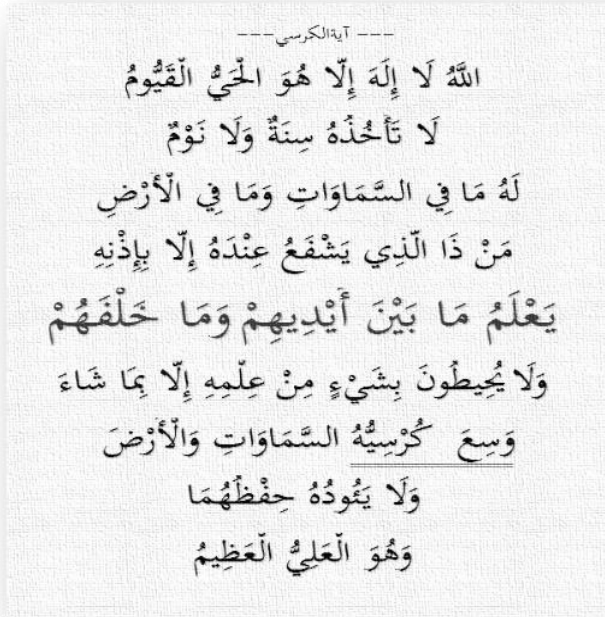 --- آيةالكرسي ---
اللَّهُ لَا إِلَهَ إِلَّا هُوَ الْحَيُّ الْقَيُّومُ
لَا تَأْخُذُهُ سِنَةٌ وَلَا نَوْمٌ
لَهُ مَا فِي السَّمَاوَاتِ وَمَا فِي الْأَرْضِ
مَنْ ذَا الَّذِي يَشْفَعُ عِنْدَهُ إِلَّا بِإِذْنِهِ
يَعْلَمُ مَا بَيْنَ أَيْدِيهِمْ وَمَا خَلْفَهُمْ
وَلَا يُحِيطُونَ بِشَيْءٍ مِنْ عِلْمِهِ إِلَّا بِمَا شَاءَ
وَسِعَ كُرْسِيُّهُ السَّمَاوَاتِ وَالْأَرْضَ
وَلَا يَئُودُهُ حِفْظُهُمَا
وَهُوَ الْعَلِيُّ الْعَظِيمُ